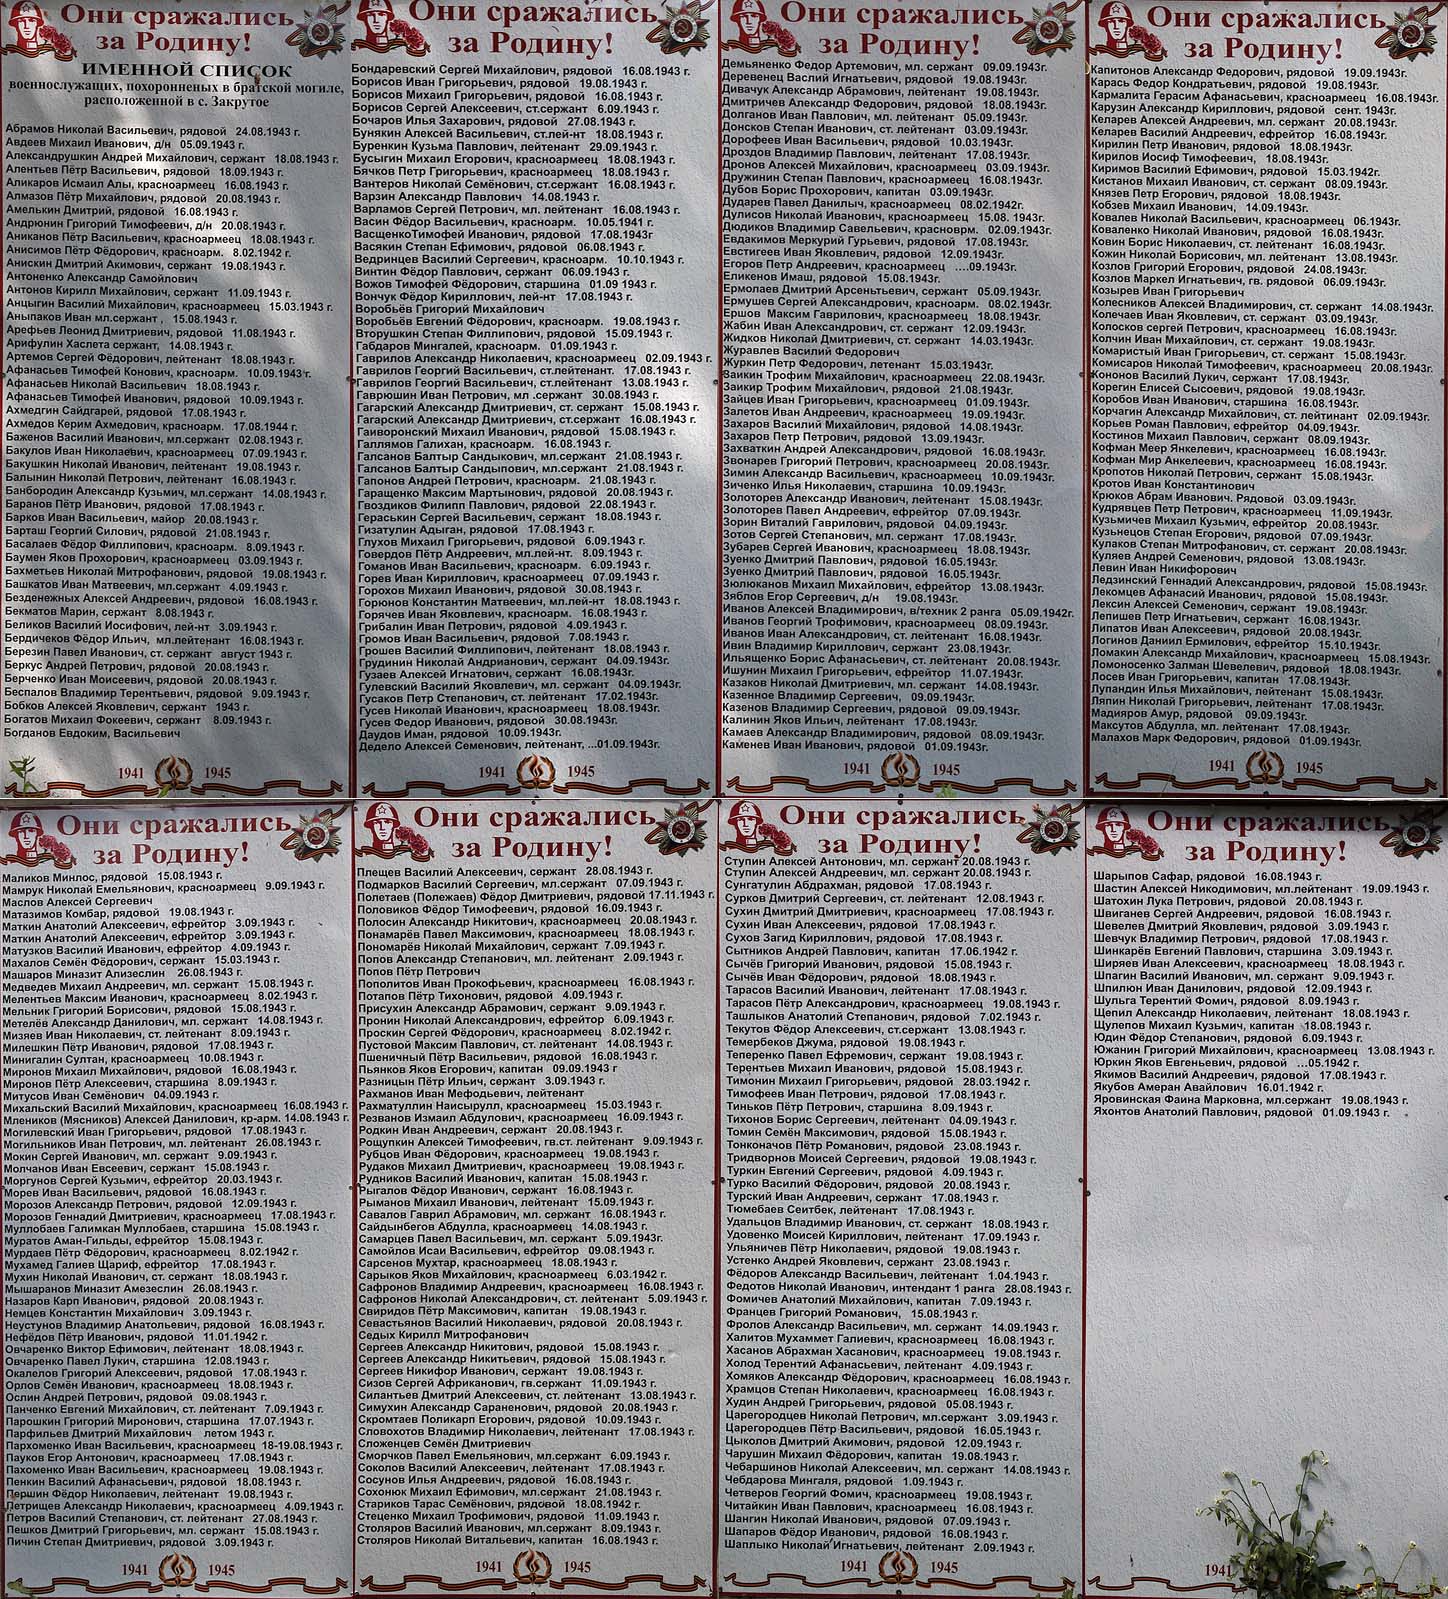 Они сражались
за Родину!
ИМЕННОЙ СПИСОК
военнослужащих, похоронненых в братской могиле,
расположенной в с. Закрутое
Абрамов Николай Васильевич, рядовой 24.08.1943 г.
Авдеев Михаил Иванович, д/н 05.09.1943 г.
Александрушкин Андрей Михайлович, сержант 18.08.1943 г.
Алентьев Пётр Васильевич, рядовой 18.09.1943 г.
Аликаров Исмаил Алы, красноармеец 16.08.1943 г.
Алмазов Пётр Михайлович, рядовой 20.08.1943 г.
Амелькин Дмитрий, рядовой 16.08.1943 г.
Андрюнин Григорий Тимофеевич, д/н 20.08.1943 г.
Аниканов Пётр Васильевич, красноармеец 18.08.1943 г.
Анисимов Пётр Фёдорович, красноарм. 8.02.1942 г.
Анискин Дмитрий Акимович, сержант 19.08.1943 г.
Антоненко Александр Самойлович
Антонов Кирилл Михайлович, сержант 11.09.1943 г.
Анцыгин Василий Михайлович, красноармеец 15.03.1943 г.
Аныпаков Иван мл.сержант , 15.08.1943 г.
Арефьев Леонид Дмитриевич, рядовой 11.08.1943 г.
Арифулин Хаслета сержант, 14.08.1943 г.
Артемов Сергей Фёдорович, лейтенант 18.08.1943 г.
Афанасьев Тимофей Конович, красноарм. 10.09.1943 г.
Афанасьев Николай Васильевич 18.08.1943 г.
Афанасьев Тимофей Иванович, рядовой 10.09.1943 г.
Ахмедгин Сайдгарей, рядовой 17.08.1943 г.
Ахмедов Керим Ахмедович, красноарм. 17.08.1944 г.
Баженов Василий Иванович, мл.сержант 02.08.1943 г.
Бакулов Иван Николаевич, красноармеец 07.09.1943 г.
Бакушкин Николай Иванович, лейтенант 19.08.1943 г.
Балынин Николай Петрович, лейтенант 16.08.1943 г.
Банбородин Александр Кузьмич, мл.сержант 14.08.1943 г.
Баранов Пётр Иванович, рядовой 17.08.1943 г.
Барков Иван Васильевич, майор 20.08.1943 г.
Барташ Георгий Силович, рядовой 21.08.1943 г.
Басалаев Фёдор Филлипович, красноарм. 8.09.1943 г.
Баумен Яков Прохорович, красноармеец 03.09.1943 г.
Бахметьев Николай Митрофанович, рядовой 19.08.1943 г.
Башкатов Иван Матвеевич, мл.сержант 4.09.1943 г.
Безденежных Алексей Андреевич, рядовой 16.08.1943 г.
Бекматов Марин, сержант 8.08.1943 г.
Беликов Василий Иосифович, лей-нт 3.09.1943 г.
Бердичеков Фёдор Ильич, мл.лейтенант 16.08.1943 г.
Березин Павел Иванович, ст. сержант август 1943 г.
Беркус Андрей Петрович, рядовой 20.08.1943 г.
Берченко Иван Моисеевич, рядовой 20.08.1943 г.
Беспалов Владимир Терентьевич, рядовой 9.09.1943 г.
Бобков Алексей Яковлевич, сержант 1943 г.
Богатов Михаил Фокеевич, сержант 8.09.1943 г.
Богданов Евдоким, Васильевич
1941 1945
Они сражались
за Родину!
Бондаревский Сергей Михайлович, рядовой 16.08.1943 г.
Борисов Иван Григорьевич, рядовой 19.08.1943 г.
Борисов Михаил Григорьевич, рядовой 16.08.1943 г.
Борисов Сергей Алексеевич, ст.сержант 6.09.1943 г.
Бочаров Илья Захарович, рядовой 27.08.1943 г.
Бунякин Алексей Васильевич, ст.лей-нт 18.08.1943 г.
Буренкин Кузьма Павлович, лейтенант 29.09.1943 г.
Бусыгин Михаил Егорович, красноармеец 18.08.1943 г.
Бячков Петр Григорьевич, красноармеец 18.08.1943 г.
Вантеров Николай Семёнович, ст.сержант 16.08.1943 г.
Варзин Александр Павлович 14.08.1943 г.
Варламов Сергей Петрович, мл. лейтенант 16.08.1943 г.
Васин Фёдор Васильевич, красноарм. 10.05.1941 г.
ВасщенкоТимофей Иванович, рядовой 17.08.1943г
Васякин Степан Ефимович, рядовой 06.08.1943 г.
Ведринцев Василий Сергеевич, красноарм. 10.10.1943 г.
Винтин Фёдор Павлович, сержант 06.09.1943 г.
Вожов Тимофей Фёдорович, старшина 01.09 1943 г.
Вончук Фёдор Кириллович, лей-нт 17.08.1943 г.
Воробьёв Григорий Михайлович
Воробьёв Евгений Фёдорович, красноарм. 19.08.1943 г.
Вторушкин Степан Филиппович, рядовой 15.09.1943 г.
Габдаров Мингалей, красноарм. 01.09.1943 г.
Гаврилов Александр Николаевич, красноармеец 02.09.1943 г.
Гаврилов Георгий Васильевич, ст.лейтенант. 17.08.1943 г.
Гаврилов Георгий Васильевич, ст.лейтенант 13.08.1943 г.
Гаврюшин Иван Петрович, мл .сержант 30.08.1943 г.
Гагарский Александр Дмитриевич, ст. сержант 15.08.1943 г.
Гагарский Александр Дмитриевич, ст.сержант 16.08.1943 г.
Гаиворонский Михаил Иванович, рядовой 15.08.1943 г.
Галлямов Галихан, красноарм. 16.08.1943 г.
Галсанов Балтыр Сандыкович, мл.сержант 21.08.1943 г.
Галсанов Балтыр Сандыпович, мл.сержант 21.08.1943 г.
Гапонов Андрей Петрович, красноарм. 21.08.1943 г.
Гаращенко Максим Мартынович, рядовой 20.08.1943 г.
Гвоздиков Филипп Павлович, рядовой 22.08.1943 г.
Гераськин Сергей Васильевич, сержант 18.08.1943 г.
Гизатулин Адыган, рядовой 17.08.1943 г.
Глухов Михаил Григорьевич, рядовой 6.09.1943 г.
Говердов Пётр Андреевич, мл.лей-нт. 8.09.1943 г.
Гоманов Иван Васильевич, красноарм. 6.09.1943 г.
Горев Иван Кириллович, красноармеец 07.09.1943 г.
Горохов Михаил Иванович, рядовой 30.08.1943 г.
Горюнов Константин Матвеевич, мл.лей-нт 18.08.1943 г.
Горячев Иван Яковлевич, красноарм. 16.08.1943 г.
Грибалин Иван Петрович, рядовой 4.09.1943 г.
Громов Иван Васильевич, рядовой 7.08.1943 г.
Грошев Василий Филлипович, лейтенант 18.08.1943 г.
Грудинин Николай Андрианович, сержант 04.09.1943г.
Гузаев Алексей Игнатович, сержант 16.08.1943г.
Гулевский Валерий Яковлевич, мл. сержант 04.09.1943г.
Гусаков Петр Степанович, ст. лейтенант 17.02.1943г.
Гусев Николай Иванович, красноармеец 18.08.1943г.
Гусев Федор Иванович, рядовой 30.08.1943г.
Даудов Иман, рядовой 10.09.1943г.
Дедело Алексей Семенович, лейтенант, ...01.09.1943г.
1941 1945
Они сражались
за Родину!
Демьяненко Федор Артемович, мл. сержант 09.09.1943г.
Деревенец Васлий Игнатьевич, рядовой 19.08.1943г.
Дивачук Александр Абрамович, лейтенант 19.08.1943г.
Дмитричев Александр Федорович, рядовой 18.08.1943г.
Долганов Иван Павлович, мл. лейтенант 05.09.1943г.
Донсков Степан Иванович, ст. лейтенант 03.09.1943г.
Дорофеев Иван Васильевич, рядовой 10.03.1943г.
Дроздов Владимир Павлович, лейтенант 17.08.1943г.
Дронов Алексей Михайлович, красноармеец 03.09.1943г.
Дружинин Степан Павлович, красноармеец 16.08.1943г.
Дубов Борис Прохорович, капитан 03.09.1943г.
Дударев Павел Данилыч, красноармеец 08.02.1942г.
Дулисов Николай Иванович, красноармеец 15.08. 1943г.
Дюдиков Владимир Савельевич, красноврм. 02.09.1943г.
Евдакимов Меркурий Гурьевич, рядовой 17.08.1943г.
Евстигеев Иван Яковлевич, рядовой 12.09.1943г.
Егоронов Петр Андреевич, красноармеец ....09.1943г.
Еликенов Имаш, рядовой 15.08.1943г.
Ермолаев Дмитрий Арсентьевич, сержант 05.09.1943г.
Ермушев Сергей Александрович, красноарм. 08.02.1943г.
Ершов Максим Гаврилович, красноармеец 18.08.1943г.
Жабин Иван Александрович, ст. сержант 12.09.1943г.
Жидков Николай Дмитриевич, ст. сержант 14.03.1943г.
Журавлев Василий Федорович
Журкин Петр Федорович, летенант 15.03.1943г.
Заикин Трофим Михайлович, красноармеец 22.08.1943г.
Заикир Трофим Михайлович, рядовой 21.08.1943г.
Зайцев Иван Григорьевич, красноармеец 01.09.1943г.
Залетов Иван Андреевич, красноармеец 19.09.1943г.
Захаров Василий Михайлович, рядовой 14.08.1943г.
Захаров Петр Петрович, рядовой 13.09.1943г.
Захваткин Андрей Александрович, рядовой 16.08.1943г.
Звонарев Григорий Петрович, красноармеец 20.08.1943г.
Зимин Александр Васильевич, красноармеец 10.09.1943г.
Зиченко Илья Николаевич, старшина 10.09.1943г.
Золоторев Александр Иванович, лейтенант 15.08.1943г.
Золоторев Павел Андреевич, ефрейтор 07.09.1943г.
Зорин Виталий Гаврилович, рядовой 04.09.1943г.
Зотов Сергей Степанович, мл. сержант 17.08.1943г.
Зубарев Сергей Иванович, красноармеец 18.08.1943г.
Зуенко Дмитрий Павлович, рядовой 16.05.1943г.
Зуенко Дмитрий Павлович, рядовой 16.05.1943г.
Зюлюканов Михаил Михайлович, ефрейтор 13.08.1943г.
Зяблов Егор Сергеевич, д/н 19.08.1943г.
Иванов Алексей Владимирович, в/техник 2 ранга 05.09.1942г.
Иванов Георгий Трофимович, красноармеец 08.09.1943г.
Иванов Иван Александрович, ст. лейтенант 16.08.1943г.
Ивин Владимир Кириллович, сержант 23.08.1943г.
Ильященко Борис Афанасьевич, ст. лейтенант 20.08.1943г.
Ишунин Михаил Григорьевич, ефрейтор 11.07.1943г.
Казаков Николай Дмитриевич, мл. сержант 14.08.1943г.
Казенное Владимир Сергеевич, 09.09.1943г.
Казенов Владимир Сергеевич, рядовой 09.09.1943г.
Калинин Яков Ильич, лейтенант 17.08.1943г.
Камаев Александр Владимирович, рядовой 08.09.1943г.
Каменев Иван Иванович, рядовой 01.09.1943г.
1941 1945
Они сражались
за Родину!
Капитонов Александр Федорович, рядовой 19.09.1943г.
Карась Федор Кондратьевич, рядовой 19.08.1943г.
Кармалита Герасим Афанасьевич, красноармеец 16.08.1943г.
Карузин Александр Кириллович, рядовой сент. 1943г.
Келарев Алексей Андреевич, мл. сержант 20.08.1943г.
Келарев Василий Андреевич, ефрейтор 16.08.1943г.
Кирилин Петр Иванович, рядовой 18.08.1943г.
Кирилов Иосиф Тимофеевич, 18.08.1943г.
Киримов Василий Ефимович, рядовой 15.03.1942г.
Кистанов Михаил Иванович, ст. сержант 08.09.1943г.
Князев Петр Егорович, рядовой 18.08.1943г.
Кобзев Михаил Иванович, 14.09.1943г.
Ковалев Николай Васильевич, красноармеец 06.1943г.
Коваленко Николай Иванович, рядовой 16.08.1943г.
Ковин Борис Николаевич, ст. лейтенант 16.08.1943г.
Кожин Николай Борисович, мл. лейтенант 13.08.1943г.
Козлов Григорий Егорович, рядовой 24.08.1943г.
Козлов Маркел Игнатьевич, гв. рядовой 06.09.1943г.
Козырев Иван Григорьевич
Колесников Алексей Владимирович, ст. сержант 14.08.1943г.
Колечаев Иван Яковлевич, ст. сержант 03.09.1943г.
Колосков сергей Петрович, красноармеец 16.08.1943г.
Колчин Иван Михайлович, ст. сержант 19.08.1943г.
Комаристый Иван Григорьевич, ст. сержант 15.08.1943г.
Комисаров Николай Тимофеевич, красноармеец 20.08.1943г.
Кононов Василий Лукич, сержант 17.08.1943г.
Корегин Елисей Сысоевич, рядовой 19.08.1943г.
Коробов Иван Иванович, старшина 16.08.1943г.
Корчагин Александр Михайлович, ст. лейтинант 02.09.1943г.
Корьев Роман Павлович, ефрейтор 04.09.1943г.
Костинов Михаил Павлович, сержант 08.09.1943г.
Кофман Меер Янкелевич, красноармеец 16.08.1943г.
Кофман Мир Анкелеевич, красноармеец 16.08.1943г.
Кропотов Николай Петрович, сержант 15.08.1943г.
Кротов Иван Константинович
Крюков Абрам Иванович. Рядовой 03.09.1943г.
Кудрявцев Петр Петрович, красноармеец 11.09.1943г.
Кузьмичев Михаил Кузьмич, ефрейтор 20.08.1943г.
Кузьнецов Степан Егорович, рядовой 07.09.1943г.
Кулаков Степан Митрофанович, ст. сержант 20.08.1943г.
Куляев Андрей Семенович, рядовой 13.08.1943г.
Левин Иван Никифорович
Ледзинский Геннадий Александрович, рядовой 15.08.1943г.
Лекомцев Афанасий Иванович, рядовой 15.08.1943г.
Лексин Алексей Семенович, сержант 19.08.1943г.
Лепишев Петр Игнатьевич, сержант 16.08.1943г.
Липатов Иван Алексеевич, рядовой 20.08.1943г.
Логинов Даниил Ермилович, ефрейтор 15.10.1943г.
Ломакин Александр Михайлович, красноармеец 15.08.1943г.
Ломоносенко Залман Шевелевич, рядовой 18.08.1943г.
Лосев Иван Григорьевич, капитан 17.08.1943г.
Лупандин Илья Михайлович, лейтенант 15.08.1943г.
Ляпин Николай Григорьевич, лейтенант 17.08.1943г.
Мадияров Амур, рядовой 09.09.1943г.
Максутов Абдулла, мл. лейтенант 17.08.1943г.
Малахов Марк Федорович, рядовой 01.09.1943г.
1941 1945
Они сражались
за Родину!
Маликов Минлос, рядовой 15.08.1943 г.
Мамрук Николай Емельянович, красноармеец 9.09.1943 г.
Маслов Алексей Сергеевич
Матазимов Комбар, рядовой 19.08.1943 г.
Маткин Анатолий Алексеевич, ефрейтор 3.09.1943 г.
Маткин Анатолий Алексеевич, ефрейтор 3.09.1943 г.
Матузков Василий Иванович, ефрейтор 4.09.1943 г.
Махалов Семён Фёдорович, сержант 15.03.1943 г.
Машаров Миназит Ализеслин 26.08.1943 г.
Медведев Михаил Андреевич, мл. сержант 15.08.1943 г.
Мелентьев Максим Иванович, красноармеец 8.02.1943 г.
Мельник Григорий Борисович, рядовой 15.08.1943 г.
Метелёв Александр Данилович, мл. сержант 14.08.1943 г.
Мизяев Иван Николаевич, ст. лейтенант 8.09.1943 г.
Милешкин Пётр Иванович, рядовой 17.08.1943 г.
Минигалин Султан, красноармеец 10.08.1943 г.
Миронов Михаил Михайлович, рядовой 16.08.1943 г.
Миронов Пётр Алексеевич, старшина 8.09.1943 г.
Митусов Иван Семёнович 04.09.1943 г.
Михальский Василий Михайлович, красноармеец 16.08.1943 г.
Млеников (Мясников) Алексей Данилович, кр-арм. 14.08.1943 г.
Могилевский Иван Григорьевич, рядовой 17.08.1943 г.
Могильников Иван Петрович, мл. лейтенант 26.08.1943 г.
Мокин Сергей Иванович, мл. сержант 9.09.1943 г.
Молчанов Иван Евсеевич, сержант 15.08.1943 г.
Моргунов Сергей Кузьмич, ефрейтор 20.03.1943 г.
Морев Иван Васильевич, рядовой 16.08.1943 г.
Морозов Александр Петрович, рядовой 12.09.1943 г.
Морозов Геннадий Дмитриевич, красноармеец 17.08.1943 г.
Муллобаев Галимкан Муллобаев, старшина 15.08.1943 г.
Муратов Аман-Гильды, ефрейтор 15.08.1943 г.
Мурдаев Пётр Фёдорович, красноармеец 8.02.1942 г.
Мухамед Галиев Щариф, ефрейтор 17.08.1943 г.
Мухин Николай Иванович, ст. сержант 18.08.1943 г.
Мышаранов Миназит Амезеслин 26.08.1943 г.
Назаров Карп Иванович, рядовой 20.08.1943 г.
Немцев Константин Михайлович 3.09.1943 г.
Неустунов Владимир Анатольевич, рядовой 16.08.1943 г.
Нефёдов Пётр Иванович, рядовой 11.01.1942 г.
Овчаренко Виктор Ефимович, лейтенант 18.08.1943 г.
Овчаренко Павел Лукич, старшина 12.08.1943 г.
Окалелов Григорий Алексеевич, рядовой 17.08.1943 г.
Орлов Семён Иванович, красноармеец 18.08.1943 г.
Ослин Андрей Петрович, рядовой 09.08.1943 г.
Панченко Евгений Михайлович, ст. лейтенант 7.09.1943 г.
Парошкин Григорий Миронович, старшина 17.07.1943 г.
Парфильев Дмитрий Михайлович летом 1943 г.
Пархоменко Иван Васильевич, красноармеец 18-19.08.1943 г.
Пауков Егор Антонович, красноармеец 17.08.1943 г.
Пахоменко Иван Васильевич, красноармеец 19.08.1943 г.
Пенкин Василий Афанасьевич, рядовой 18.08.1943 г.
Першин Фёдор Николаевич, лейтенант 19.08.1943 г.
Петрищев Александр Николаевич, красноармеец 4.09.1943 г.
Петров Василий Степанович, ст. лейтенант 27.08.1943 г.
Пешков Дмитрий Григорьевич, мл. сержант 15.08.1943 г.
Пичин Степан Дмитриевич, рядовой 3.09.1943 г.
1941 1945
Они сражались
за Родину!
Плещев Василий Алексеевич, сержант 28.08.1943 г.
Подмарков Василий Сергеевич, мл.сержант 07.09.1943 г.
Полетаев (Полежаев) Фёдор Дмитриевич, рядовой 17.11.1943 г.
Половиков Фёдор Тимофеевич, рядовой 16.09.1943 г.
Полосин Александр Никитович, красноармеец 20.08.1943 г.
Понамарёв Павел Максимович, красноармеец 18.08.1943 г.
Пономарёв Николай Михайлович, сержант 7.09.1943 г.
Попов Александр Степанович, мл. лейтенант 2.09.1943 г.
Попов Пётр Петрович
Пополитов Иван Прокофьевич, красноармеец 16.08.1943 г.
Потапов Пётр Тихонович, рядовой 4.09.1943 г.
Присухин Александр Абрамович, сержант 9.09.1943 г.
Пронин Николай Александрович, ефрейтор 6.09.1943 г.
Проскин Сергей Фёдорович, красноармеец 8.02.1942 г.
Пустовой Максим Павлович, ст. лейтенант 14.08.1943 г.
Пшеничный Пётр Васильевич, рядовой 16.08.1943 г.
Пьянков Яков Егорович, капитан 09.09.1943 г.
Разницын Пётр Ильич, сержант 3.09.1943 г.
Рахманов Иван Мефодьевич, лейтенант
Рахматуллин Наисырулл, красноармеец 15.03.1943 г.
Резванов Измаил Абдулович, красноармеец 16.09.1943 г.
Родкин Иван Андреевич, сержант 20.08.1943 г.
Рощупкин Алексей Тимофеевич, гв.ст. лейтенант 9.09.1943 г.
Рубцов Иван Фёдорович, красноармеец 19.08.1943 г.
Рудаков Михаил Дмитриевич, красноармеец 19.08.1943 г.
Рудников Василий Иванович, капитан 15.08.1943 г.
Рыгалов Фёдор Иванович, сержант 16.08.1943 г.
Рыманов Михаил Иванович, лейтенант 15.09.1943 г.
Саватов Гаврил Абрамович, мл. сержант 16.08.1943 г.
Сайдынбегов Абдулла, красноармеец 14.08.1943 г.
Самарцев Павел Васильевич, мл. сержант 5.09.1943г.
Самойлов Исаи Васильевич, ефрейтор 09.08.1943 г.
Сарсенов Мухтар, красноармеец 18.08.1943 г.
Сарыков Яков Михайлович, красноармеец 6.03.1942 г.
Сафронов Владимир Андреевич, красноармеец 16.08.1943 г.
Сафронов Николай Александрович, ст. лейтенант 5.09.1943 г.
Свиридов Пётр Максимович, капитан 19.08.1943 г.
Севастьянов Василий Николаевич, рядовой 20.08.1943 г.
Седых Кирилл Митрофанович
Сергеев Александр Никитович, рядовой 15.08.1943 г.
Сергеев Александр Никитьевич, рядовой 15.08.1943 г.
Сергеев Никифор Иванович, сержант 19.08.1943 г.
Сизов Сергей Африканович, гв.сержант 11.09.1943 г.
Силантьев Дмитрий Алексеевич, ст. лейтенант 13.08.1943 г.
Симухин Александр Сараненович, рядовой 20.08.1943 г.
Скромтаев Поликарп Егорович, рядовой 10.09.1943 г.
Словохотов Владимир Николаевич, лейтенант 17.08.1943 г.
Сложенцев Семён Дмитриевич
Сморчков Павел Емельянович, мл.сержант 6.09.1943 г.
Соколов Василий Алексеевич, лейтенант 17.08.1943 г.
Сосунов Илья Андреевич, рядовой 16.08.1943 г.
Сохонюк Михаил Ефимович, мл.сержант 21.08.1943 г.
Стариков Тарас Семёнович, рядовой 18.08.1942 г.
Стеценко Михаил Трофимович, рядовой 11.09.1943 г.
Столяров Василий Иванович, мл.сержант 8.09.1943 г.
Столяров Николай Витальевич, капитан 16.08.1943 г.
1941 1945
Они сражались
за Родину!
Ступин Алексей Антонович, мл. сержант 20.08.1943 г.
Ступин Алексей Андреевич, мл. сержант 20.08.1943 г.
Сунгатулин Абдрахман, рядовой 17.08.1943 г.
Сурков Дмитрий Сергеевич, ст. лейтенант 12.08.1943 г.
Сухин Дмитрий Дмитриевич, красноармеец 17.08.1943 г.
Сухин Иван Алексеевич, рядовой 17.08.1943 г.
Сухов Загид Кириллович, рядовой 17.08.1943 г.
Сытников Андрей Павлович, капитан 17.06.1942 г.
Сычёв Григорий Иванович, рядовой 15.08.1943 г.
Сычёв Иван Фёдорович, рядовой 18.08.1943 г.
Тарасов Василий Иванович, лейтенант 17.08.1943 г.
Тарасов Пётр Александрович, красноармеец 19.08.1943 г.
Ташлыков Анатолий Степанович, рядовой 7.02.1943 г.
Текутов Фёдор Алексеевич, ст.сержант 13.08.1943 г.
Темербеков Джума, рядовой 19.08.1943 г.
Теперенко Павел Ефремович, сержант 19.08.1943 г.
Терентьев Михаил Иванович, рядовой 15.08.1943 г.
Тимонин Михаил Григорьевич, рядовой 28.03.1942 г.
Тимофеев Иван Петрович, рядовой 17.08.1943 г.
Тиньков Пётр Петрович, старшина 8.09.1943 г.
Тихонов Борис Сергеевич, лейтенант 04.09.1943 г.
Томин Семён Максимович, рядовой 15.08.1943 г.
Тонконачов Пётр Романович, рядовой 23.08.1943 г.
Тридворнов Моисей Сергеевич, рядовой 19.08.1943 г.
Туркин Евгений Сергеевич, рядовой 4.09.1943 г.
Турко Василий Фёдорович, рядовой 20.08.1943 г.
Турский Иван Андреевич, сержант 17.08.1943 г.
Тюмебаев Сеитбек, лейтенант 17.08.1943 г.
Удальцов Владимир Иванович, ст. сержант 18.08.1943 г.
Удовенко Моисей Кириллович, лейтенант 17.09.1943 г.
Ульяничев Пётр Николаевич, рядовой 19.08.1943 г.
Устенко Андрей Яковлевич, сержант 23.08.1943 г.
Фёдоров Александр Васильевич, лейтенант 1.04.1943 г.
Федотов Николай Иванович, интендант 1 ранга 28.08.1943 г.
Фомичев Анатолий Михайлович, капитан 7.09.1943 г.
Францев Григорий Романович, 15.08.1943 г.
Фролов Александр Васильевич, мл. сержант 14.09.1943 г.
Халитов Мухаммет Галиевич, красноармеец 16.08.1943 г.
Хасанов Абрахман Хасанович, красноармеец 19.08.1943 г.
Холод Терентий Афанасьевич, лейтенант 4.09.1943 г.
Хомяков Александр Фёдорович, красноармеец 16.08.1943 г.
Храмцов Степан Николаевич, красноармеец 16.08.1943 г.
Худин Андрей Григорьевич, рядовой 05.08.1943 г.
Царегородцев Николай Петрович, мл.сержант 3.09.1943 г.
Царегородцев Пётр Васильевич, рядовой 16.05.1943 г.
Цыколов Дмитрий Акимович, рядовой 12.09.1943 г.
Чарушин Михаил Фёдорович, капитан 19.08.1943 г.
Чебаршинов Николай Алексеевич, мл. сержант 14.08.1943 г.
Чебдарова Мингаля, рядовой 1.09.1943 г.
Четверов Георгий Фомич, красноармеец 19.08.1943 г.
Читайкин Иван Павлович, красноармеец 16.08.1943 г.
Шангин Николай Иванович, рядовой 07.09.1943 г.
Шапаров Фёдор Иванович, рядовой 16.08.1943 г.
Шаплыко Николай Игнатьевич, лейтенант 2.09.1943 г.
1941 1945
Они сражались
за Родину!
Шарыпов Сафар, рядовой 16.08.1943 г.
Шастин Алексей Никодимович, мл.лейтенант 19.09.1943 г.
Шатохин Лука Петрович, рядовой 20.08.1943 г.
Швиганев Сергей Андреевич, рядовой 16.08.1943 г.
Шевелев Дмитрий Яковлевич, рядовой 3.09.1943 г.
Шевчук Владимир Петрович, рядовой 17.08.1943 г.
Шинкарёв Евгений Павлович, старшина 3.09.1943 г.
Ширяев Иван Алексеевич, красноармеец 18.08.1943 г.
Шпагин Василий Иванович, мл. сержант 9.09.1943 г.
Шпилюн Иван Данилович, рядовой 12.09.1943 г.
Шульга Терентий Фомич, рядовой 8.09.1943 г.
Щепил Александр Николаевич, лейтенант 18.08.1943 г.
Щулепов Михаил Кузьмич, капитан 18.08.1943 г.
Юдин Фёдор Степанович, рядовой 6.09.1943 г.
Южанин Григорий Михайлович, красноармеец 13.08.1943 г.
Юркин Яков Евгеньевич, рядовой ...05.1942 г.
Якимов Василий Андреевич, рядовой 17.08.1943 г.
Якубов Амеран Авайлович 16.01.1942 г.
Яровинская Фаина Марковна, мл.сержант 19.08.1943 г.
Яхонтов Анатолий Павлович, рядовой 01.09.1943 г.
1941